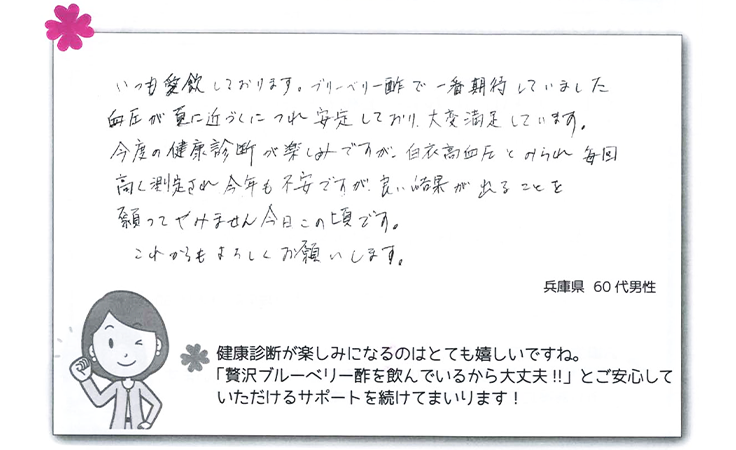 いつも愛飲しております。ブリーベリー酢で一番期待していました
血圧が夏に近づくにつれ安定しており、大変満足しています。
今度の健康診断が楽しみですが、白衣高血圧とみられ毎回
高く測定され今年も不安ですが、良い結果が出ることを
願ってやみません今日この頃です。
これからもよろしくお願いします。
兵庫県 60代男性
健康診断が楽しみになるのはとても嬉しいですね。
「贅沢ブルーベリー酢を飲んでいるから大丈夫!!」とご安心して
いただけるサポートを続けてまいります！